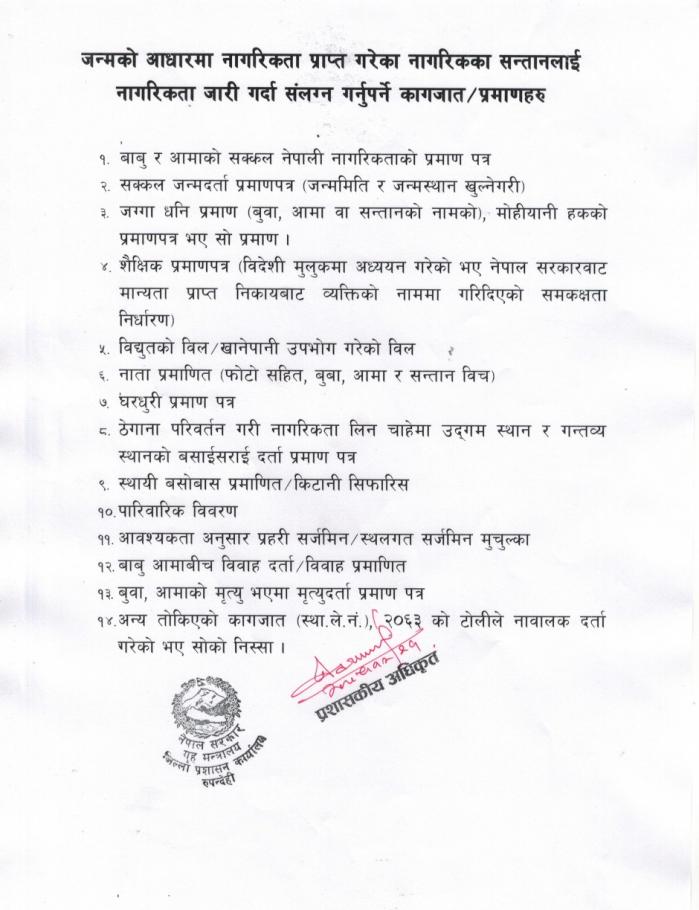 जन्मको आधारमा नागरिकता प्राप्त गरेका नागरिकका सन्तानलाई
नागरिकता जारी गर्दा संलग्न गर्नुपर्ने कागजात/प्रमाणहरु
१. बाबु र आमाको सक्कल नेपाली नागरिकताको प्रमाण पत्र
२. सक्कल जन्मदर्ता प्रमाणपत्र (जन्ममिति र जन्मस्थान खुल्नेगरी)
३. जग्गा धनि प्रमाण (बुवा, आमा वा सन्तानको नामको), मोहीयानी हकको
प्रमाणपत्र भए सो प्रमाण ।
४. शैक्षिक प्रमाणपत्र (विदेशी मुलुकमा अध्ययन गरेको भए नेपाल सरकारवाट
मान्यता प्राप्त निकायबाट व्यक्तिको नाममा गरिदिएको समकक्षता
निर्धारण)
५. विद्युतको विल/खानेपानी उपभोग गरेको विल
६. नाता प्रमाणित (फोटो सहित, बुबा, आमा र सन्तान विच)
७. घरधुरी प्रमाण पत्र
८. ठेगाना परिवर्तन गरी नागरिकता लिन चाहेमा उद्‌गम स्थान र गन्तव्य
स्थानको बसाईसराई दर्ता प्रमाण पत्र
९. स्थायी बसोबास प्रमाणित/किटानी सिफारिस
१०.पारिवारिक विवरण
११. आवश्यकता अनुसार प्रहरी सर्जमिन/स्थलगत सर्जमिन मुचुल्का
१२.बाबु आमाबीच विवाह दर्ता/विवाह प्रमाणित
१३. बुवा, आमाको मृत्यु भएमा मृत्युदर्ता प्रमाण पत्र
१४.अन्य तोकिएको कागजात (स्था.ले.नं.), २०६३ को टोलीले नावालक दर्ता
गरेको भए सोको निस्सा ।
प्रशासकीय अधिकृत
नेपाल सरकार
गृह मन्त्रालय
जिल्ला प्रशासन कार्यालय
रुपन्देही